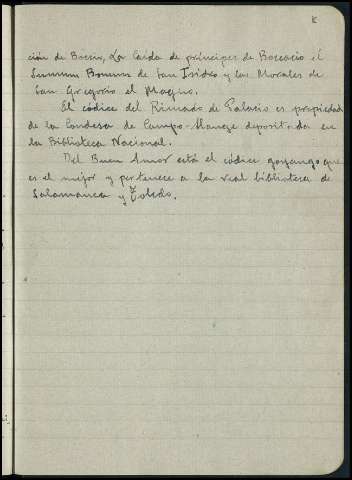 ción de Boecio, La Caida de principes de Boccacio el
Summum Bonum de San Isidro y los Morales de
San Gregorio el Magno.
El códice del Rimado de Palacio es propiedad
de la Condesa de Campo-Alange depositado en
la Biblioteca Nacional.
Del Buen Amor está el códice gayangos que
es el mejor y pertenece a la real biblioteca de
Salamanca y Toledo.